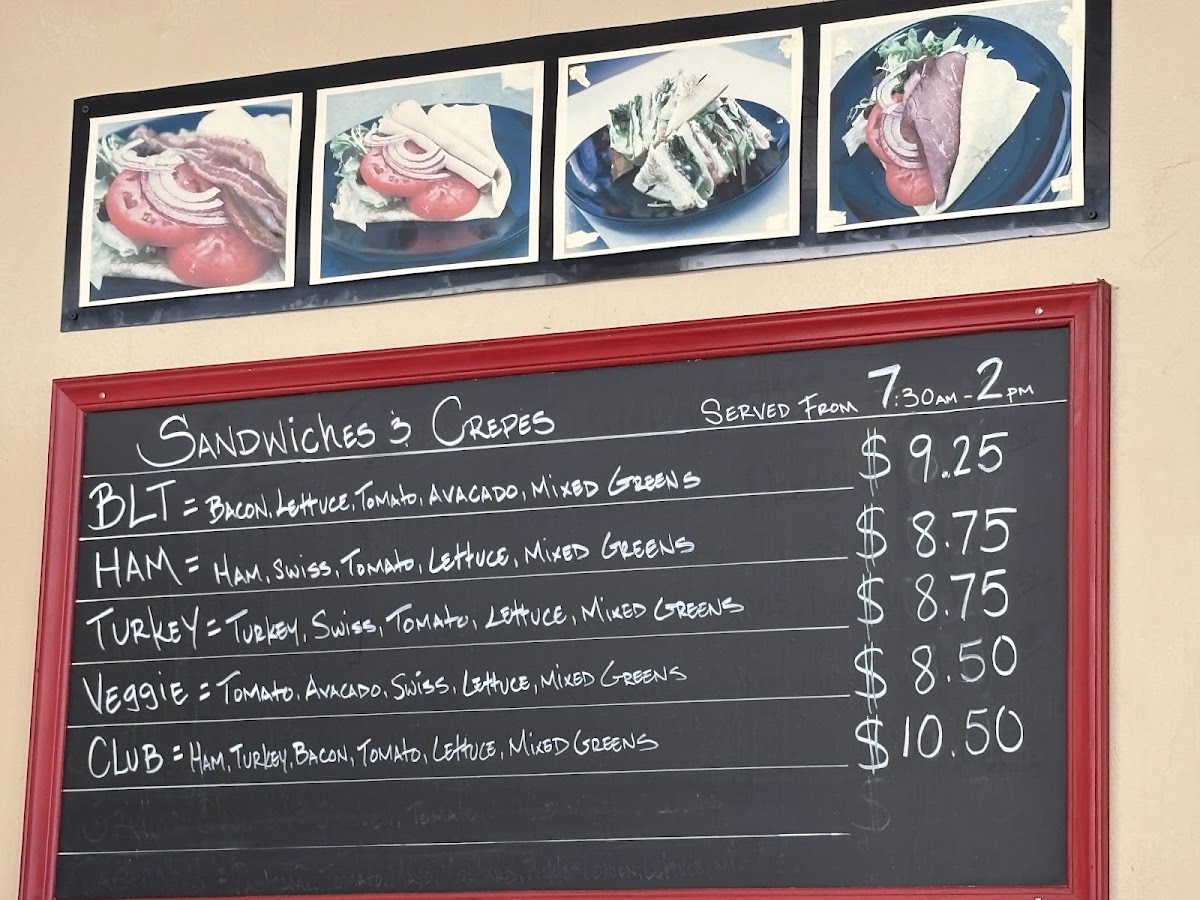 SANDWICHES & CREPES SERVED FROM 7:30AM - 2PM
BLT = BACON, LETTUCE, TOMATO, AVACADO, MIXED GREENS $ 9.25
HAM = HAM, SWISS, TOMATO, LETTUCE, MIXED GREENS $ 8.75
TURKEY = TURKEY, SWISS, TOMATO, LETTUCE, MIXED GREENS $ 8.75
VEGGIE = TOMATO, AVACADO, SWISS, LETTUCE, MIXED GREENS $ 8.50
CLUB = HAM, TURKEY, BACON, TOMATO, LETTUCE, MIXED GREENS $ 10.50